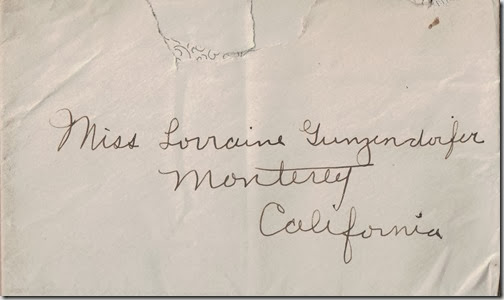 Miss Lorraine Gunzendorfer
Monterey
California